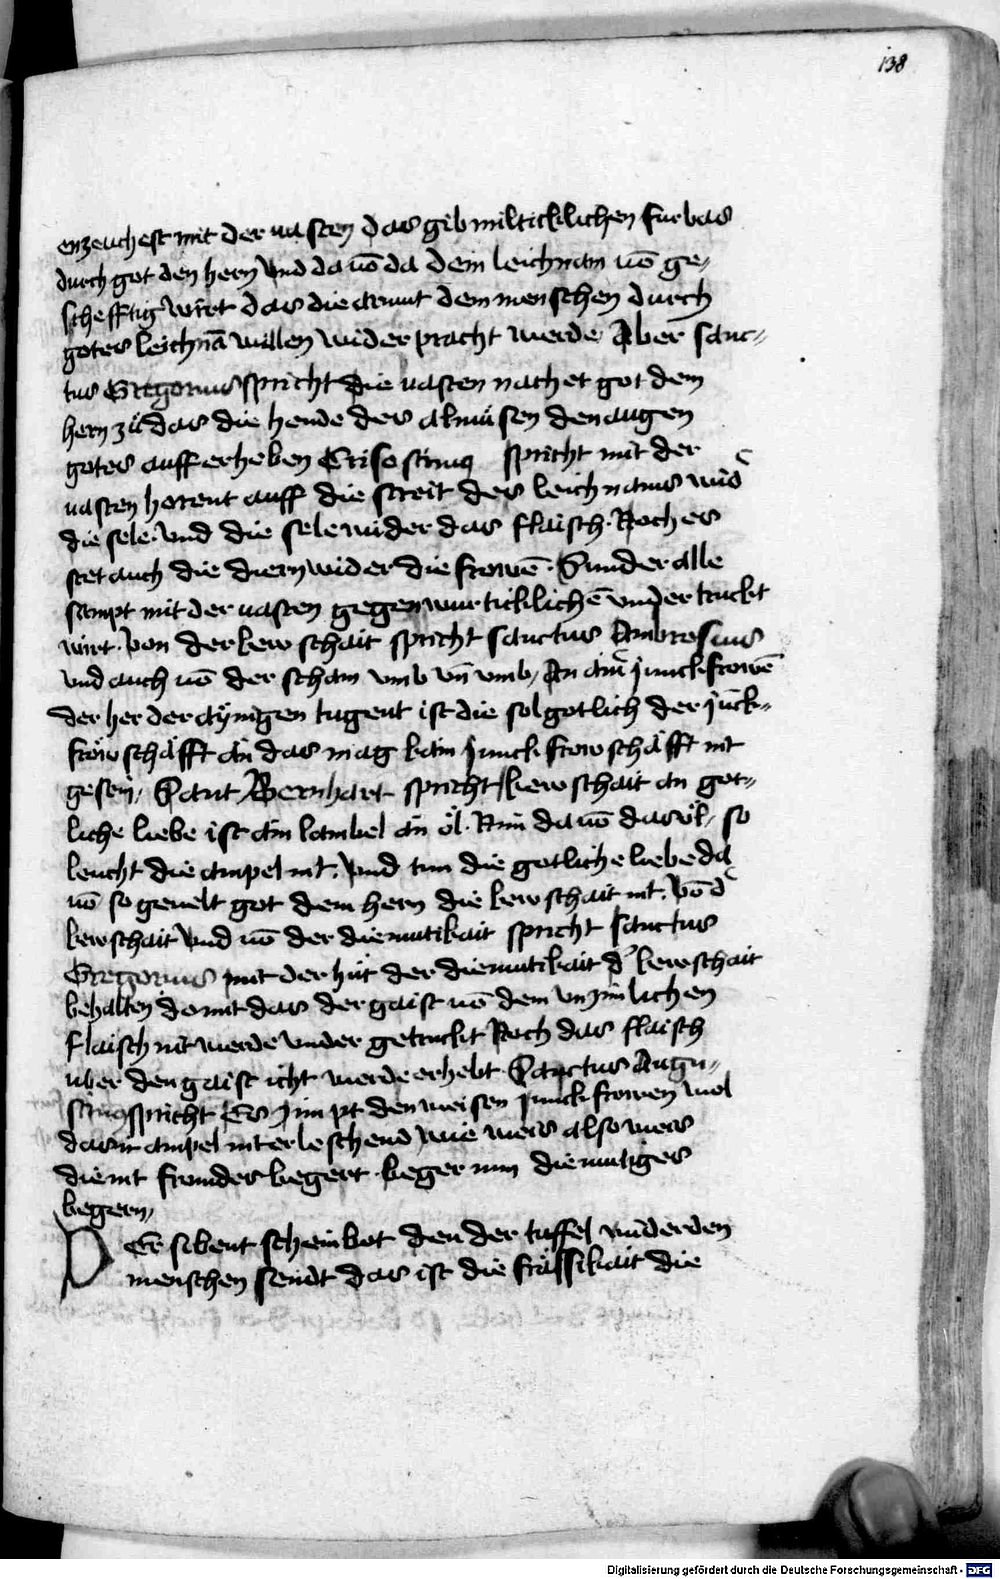 138
enzeuchest mit der uasten das gib milticklichen furbas
durch got den hern vnd da uō da dem leichnam uō ge-
schefftig wirt das die armut dem menschen durch
gotes leichnā willen wider pracht werde Aber sanc-
tus Gregorius spricht die uasten nachet got dem
hern zů das die hende des almůsen den augen
gotes auff erheben Crisostimus spricht mit der
uasten horent auff die streit des leichnams wid
die sele. vnd die sele wider das flaisch. Noch es
stet auch die diern wider die frowē. Sunder alle
sampt mit der uasten gegenwurticklichē vnder truckt
wirt. Von der kew schait spricht sanctus Ambrosius
vnd auch uō der scham vmb vn̄ vmb, An ain junckfrowē
der her der aynigen tugent ist die sol gotlich der junck-
frow schafft an das mag kain junckfrowschafft nit
gesein, Sant Bernhart spricht kewschait an got-
liche liebe ist ain lambel an öl. Nim da uō das öl, so
leucht die ampel nit. vnd tun die gotliche liebe da
uō so geuelt got dem hern die kewschait nit. Vō d
kewschait vnd uō der diemutikait spricht sanctus
Gregorius mit der hůt der diemutikait d kewschait
behalten domit das der gaist uō dem vnzimlichen
flaisch nit werde vnder getruckt Noch das flaisch
uber den gaist icht werde erhebt. Sanctus Augu-
stinus spricht Es zimpt den weisen junckfrowen wol
das ir ampel nit erleschend wie wers also wers
die nit fromdes begert. beger nun diemutiges
begern,
DEr sibent schein bot den der tuffel vnder den
menschen sendt das ist die frässikait die
Digitalisierung gefördert durch die Deutsche Forschungsgemeinschaft - DFG